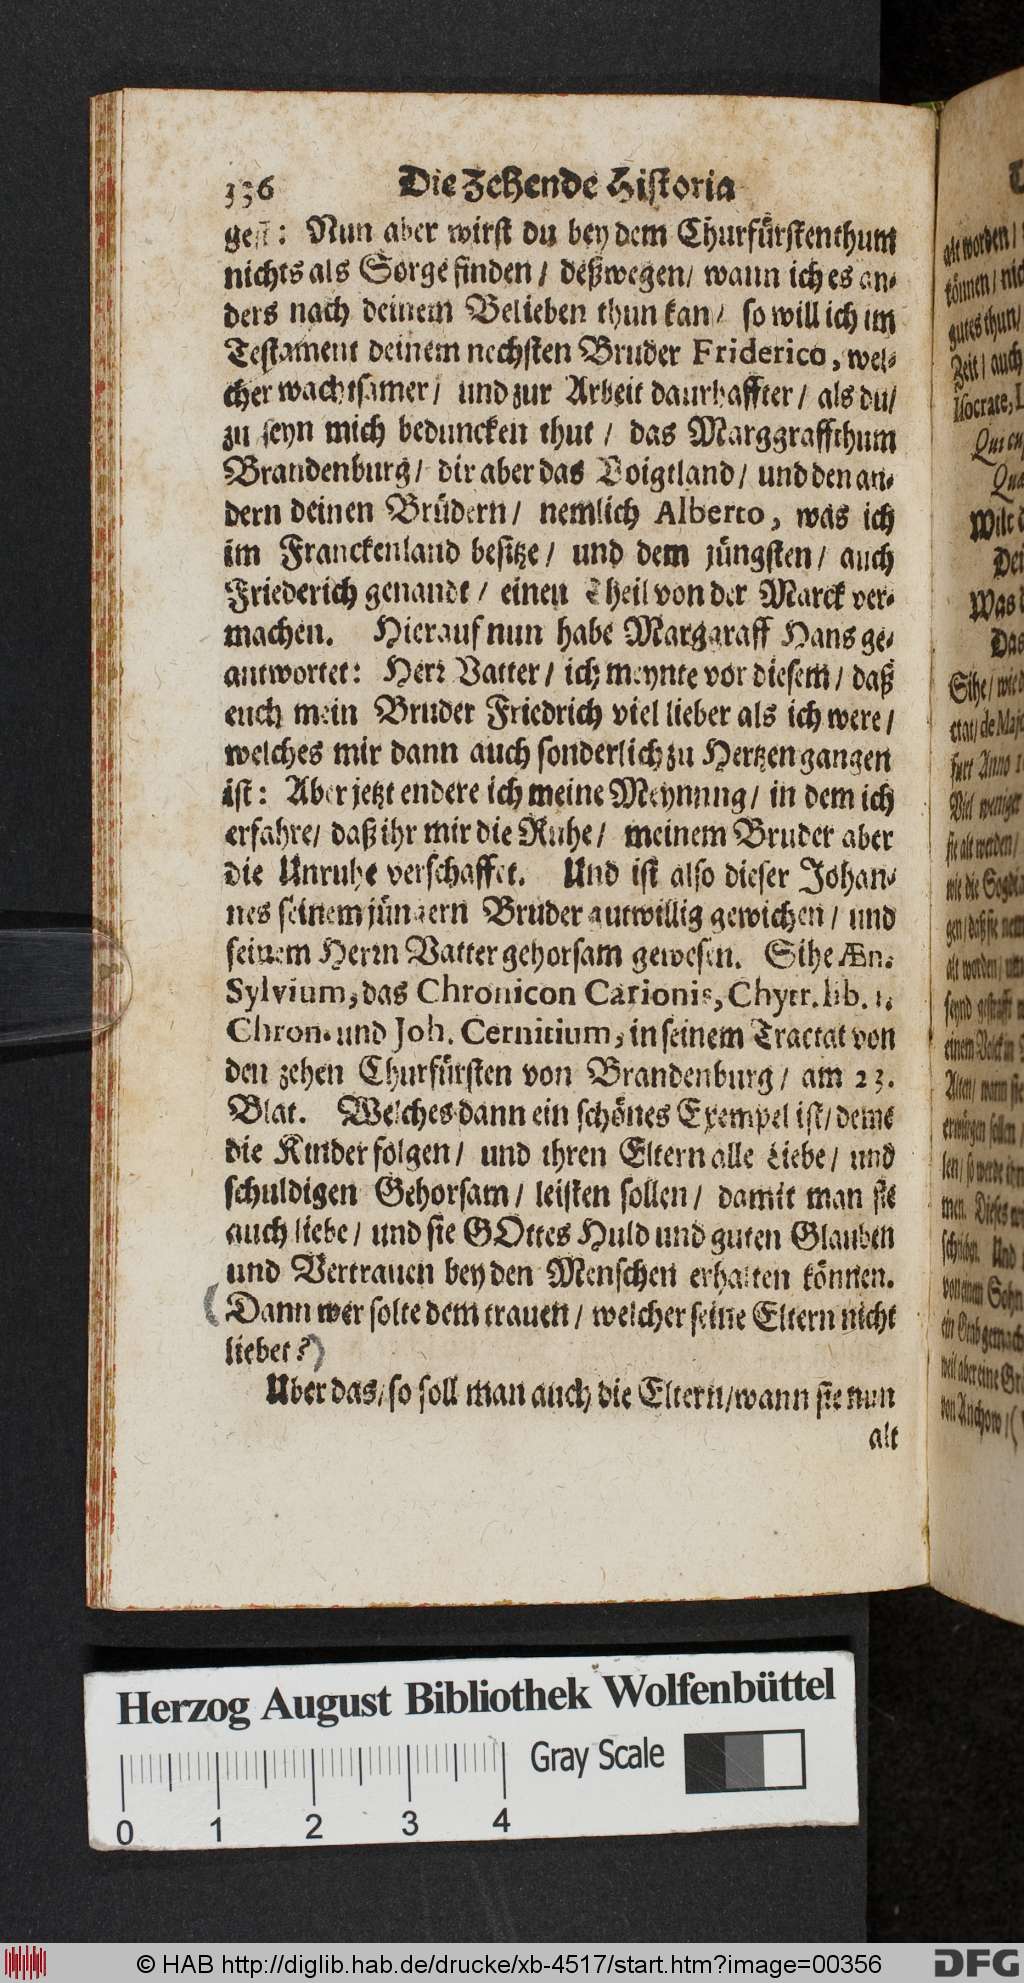 336 Die Zehende Historia
gest: Nun aber wirst du bey dem Churfürstenthum
nichts als Sorge finden / deßwegen / wann ich es an-
ders nach deinem Belieben thun kan / so will ich im
Testament deinem nechsten Bruder Friderico, wel-
cher wachtsamer / und zur Arbeit daurhaffter / als du /
zu seyn mich beduncken thut / das Marggraffthum
Brandenburg / dir aber das Voigtland / und den an-
dern deinen Brüdern / nemlich Alberto, was ich
im Franckenland besitze / und dem jüngsten / auch
Friederich genandt / einen Theil von der Marck ver-
machen. Hierauf nun habe Marggraff Hans ge-
antwortet: Herr Vatter / ich meynte vor diesem / daß
euch mein Bruder Friedrich viel lieber als ich were /
welches mir dann auch sonderlich zu Hertzen gangen
ist: Aber jetzt endere ich meine Meynung / in dem ich
erfahre / daß ihr mir die Ruhe / meinem Bruder aber
die Unruhe verschaffet. Und ist also dieser Johan-
nes seinem jüngern Bruder gutwillig gewichen / und
seinem Herrn Vatter gehorsam gewesen. Sihe Æn.
Sylvium, das Chronicon Carionis, Chytr. lib. 1.
Chron. und Joh. Cernitium, in seinem Tractat von
den zehen Churfürsten von Brandenburg / am 23.
Blat. Welches dann ein schönes Exempel ist / deme
die Kinder folgen / und ihren Eltern alle Liebe / und
schuldigen Gehorsam / leisten sollen / damit man sie
auch liebe / und sie GOttes Huld und guten Glauben
und Vertrauen bey den Menschen erhalten können.
(Dann wer solte dem trauen / welcher seine Eltern nicht
liebet?)
Uber das / so soll man auch die Eltern / wann sie nun
alt
alt worden /
können / nich
gutes thun /
Zeit / auch
Isocrate,
Wilt
Was d
Das
Sihe / wie
furt Anno
Viel weniger
sie alt werden /
alt worden /
Alten / wann sie
erwürgen sollen /
men. Dieses
schrieben. Und
von einem Sohn
ein Grab gemacht
weil aber eine
von Anchow / (
Herzog August Bibliothek Wolfenbüttel
Gray Scale
0 1 2 3 4
© HAB http://diglib.hab.de/drucke/xb-4517/start.htm?image=00356
DFG